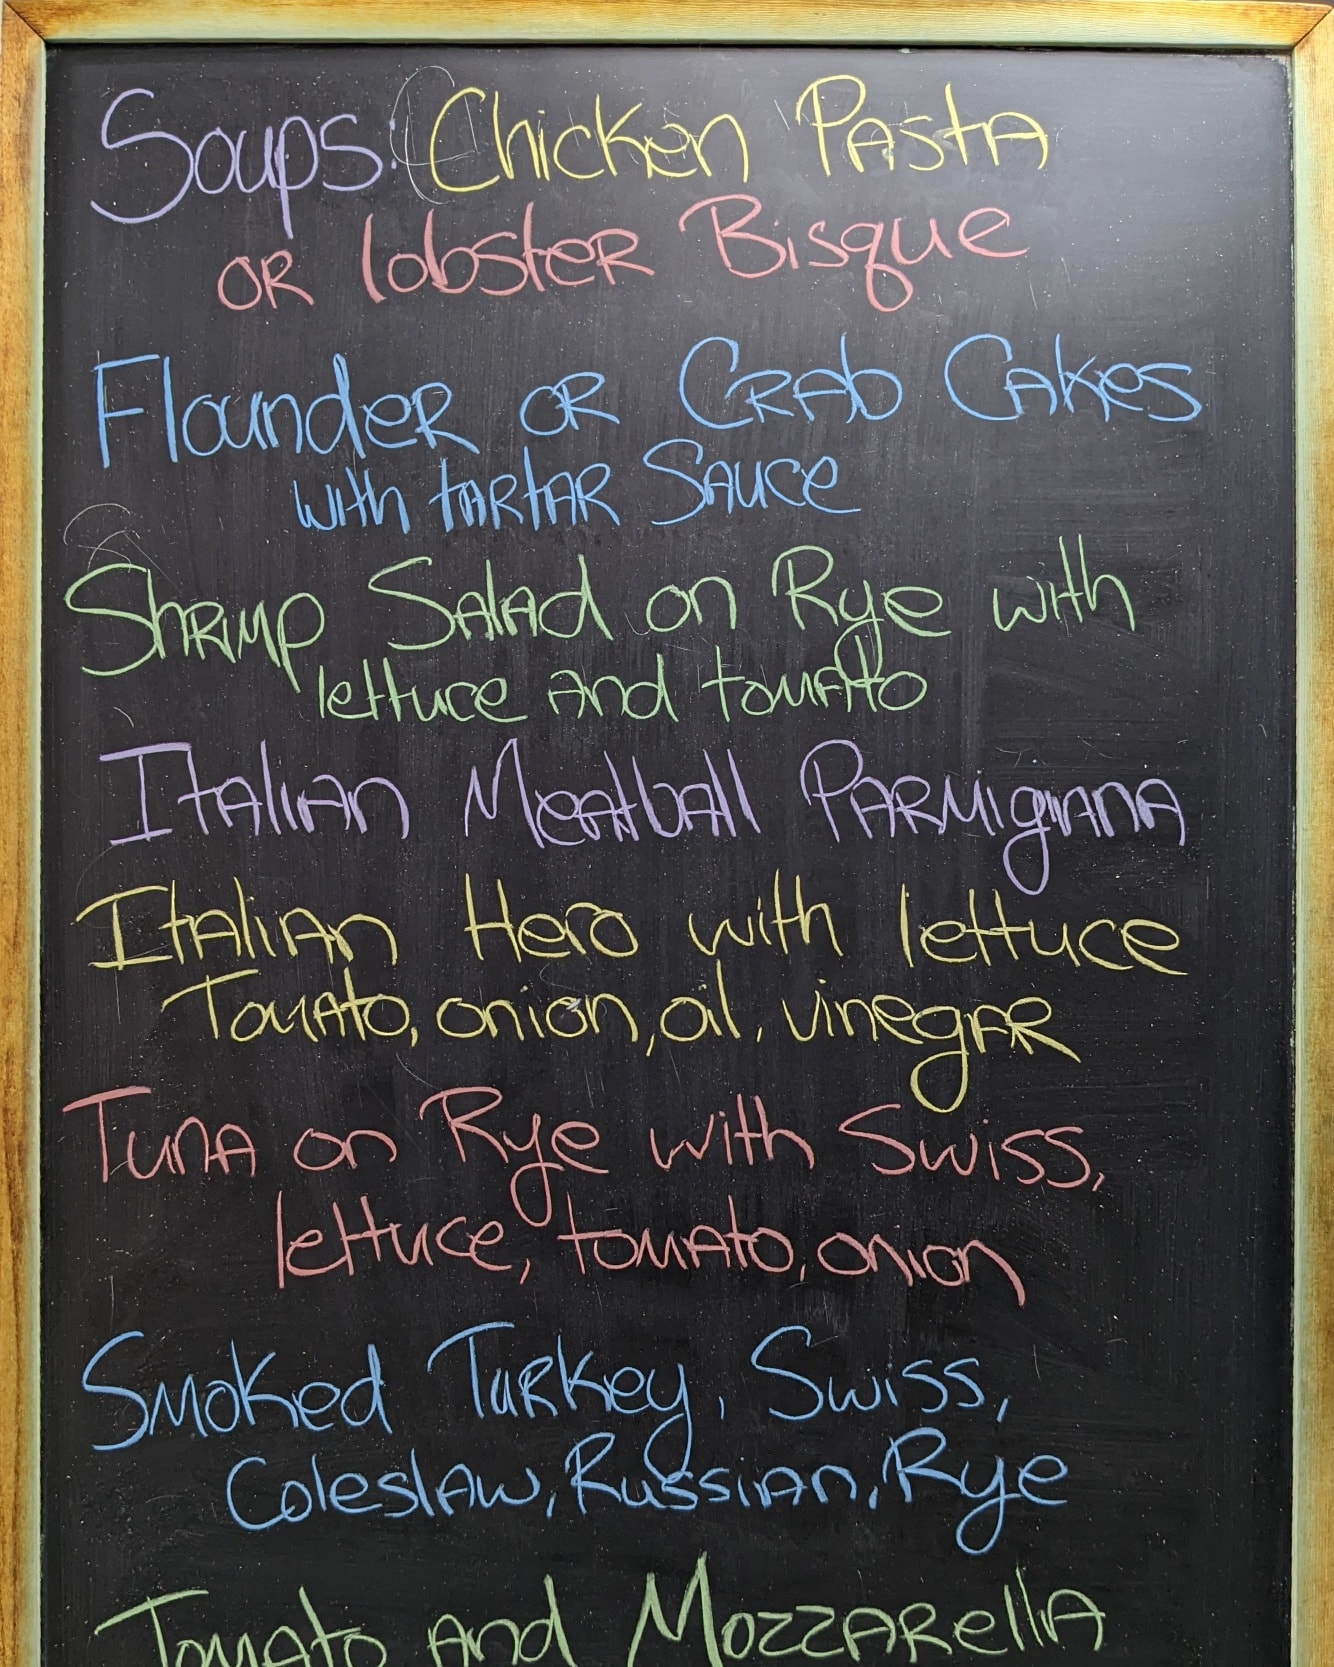 Soups: Chicken Pasta
or lobster Bisque
Flounder or Crab Cakes
with tartar Sauce
Shrimp Salad on Rye with
lettuce and tomato
Italian Meatball Parmigiana
Italian Hero with lettuce
Tomato, onion, oil, vinegar
Tuna on Rye with Swiss,
lettuce, tomato, onion
Smoked Turkey, Swiss,
Coleslaw, Russian, Rye
Tomato and Mozzarella